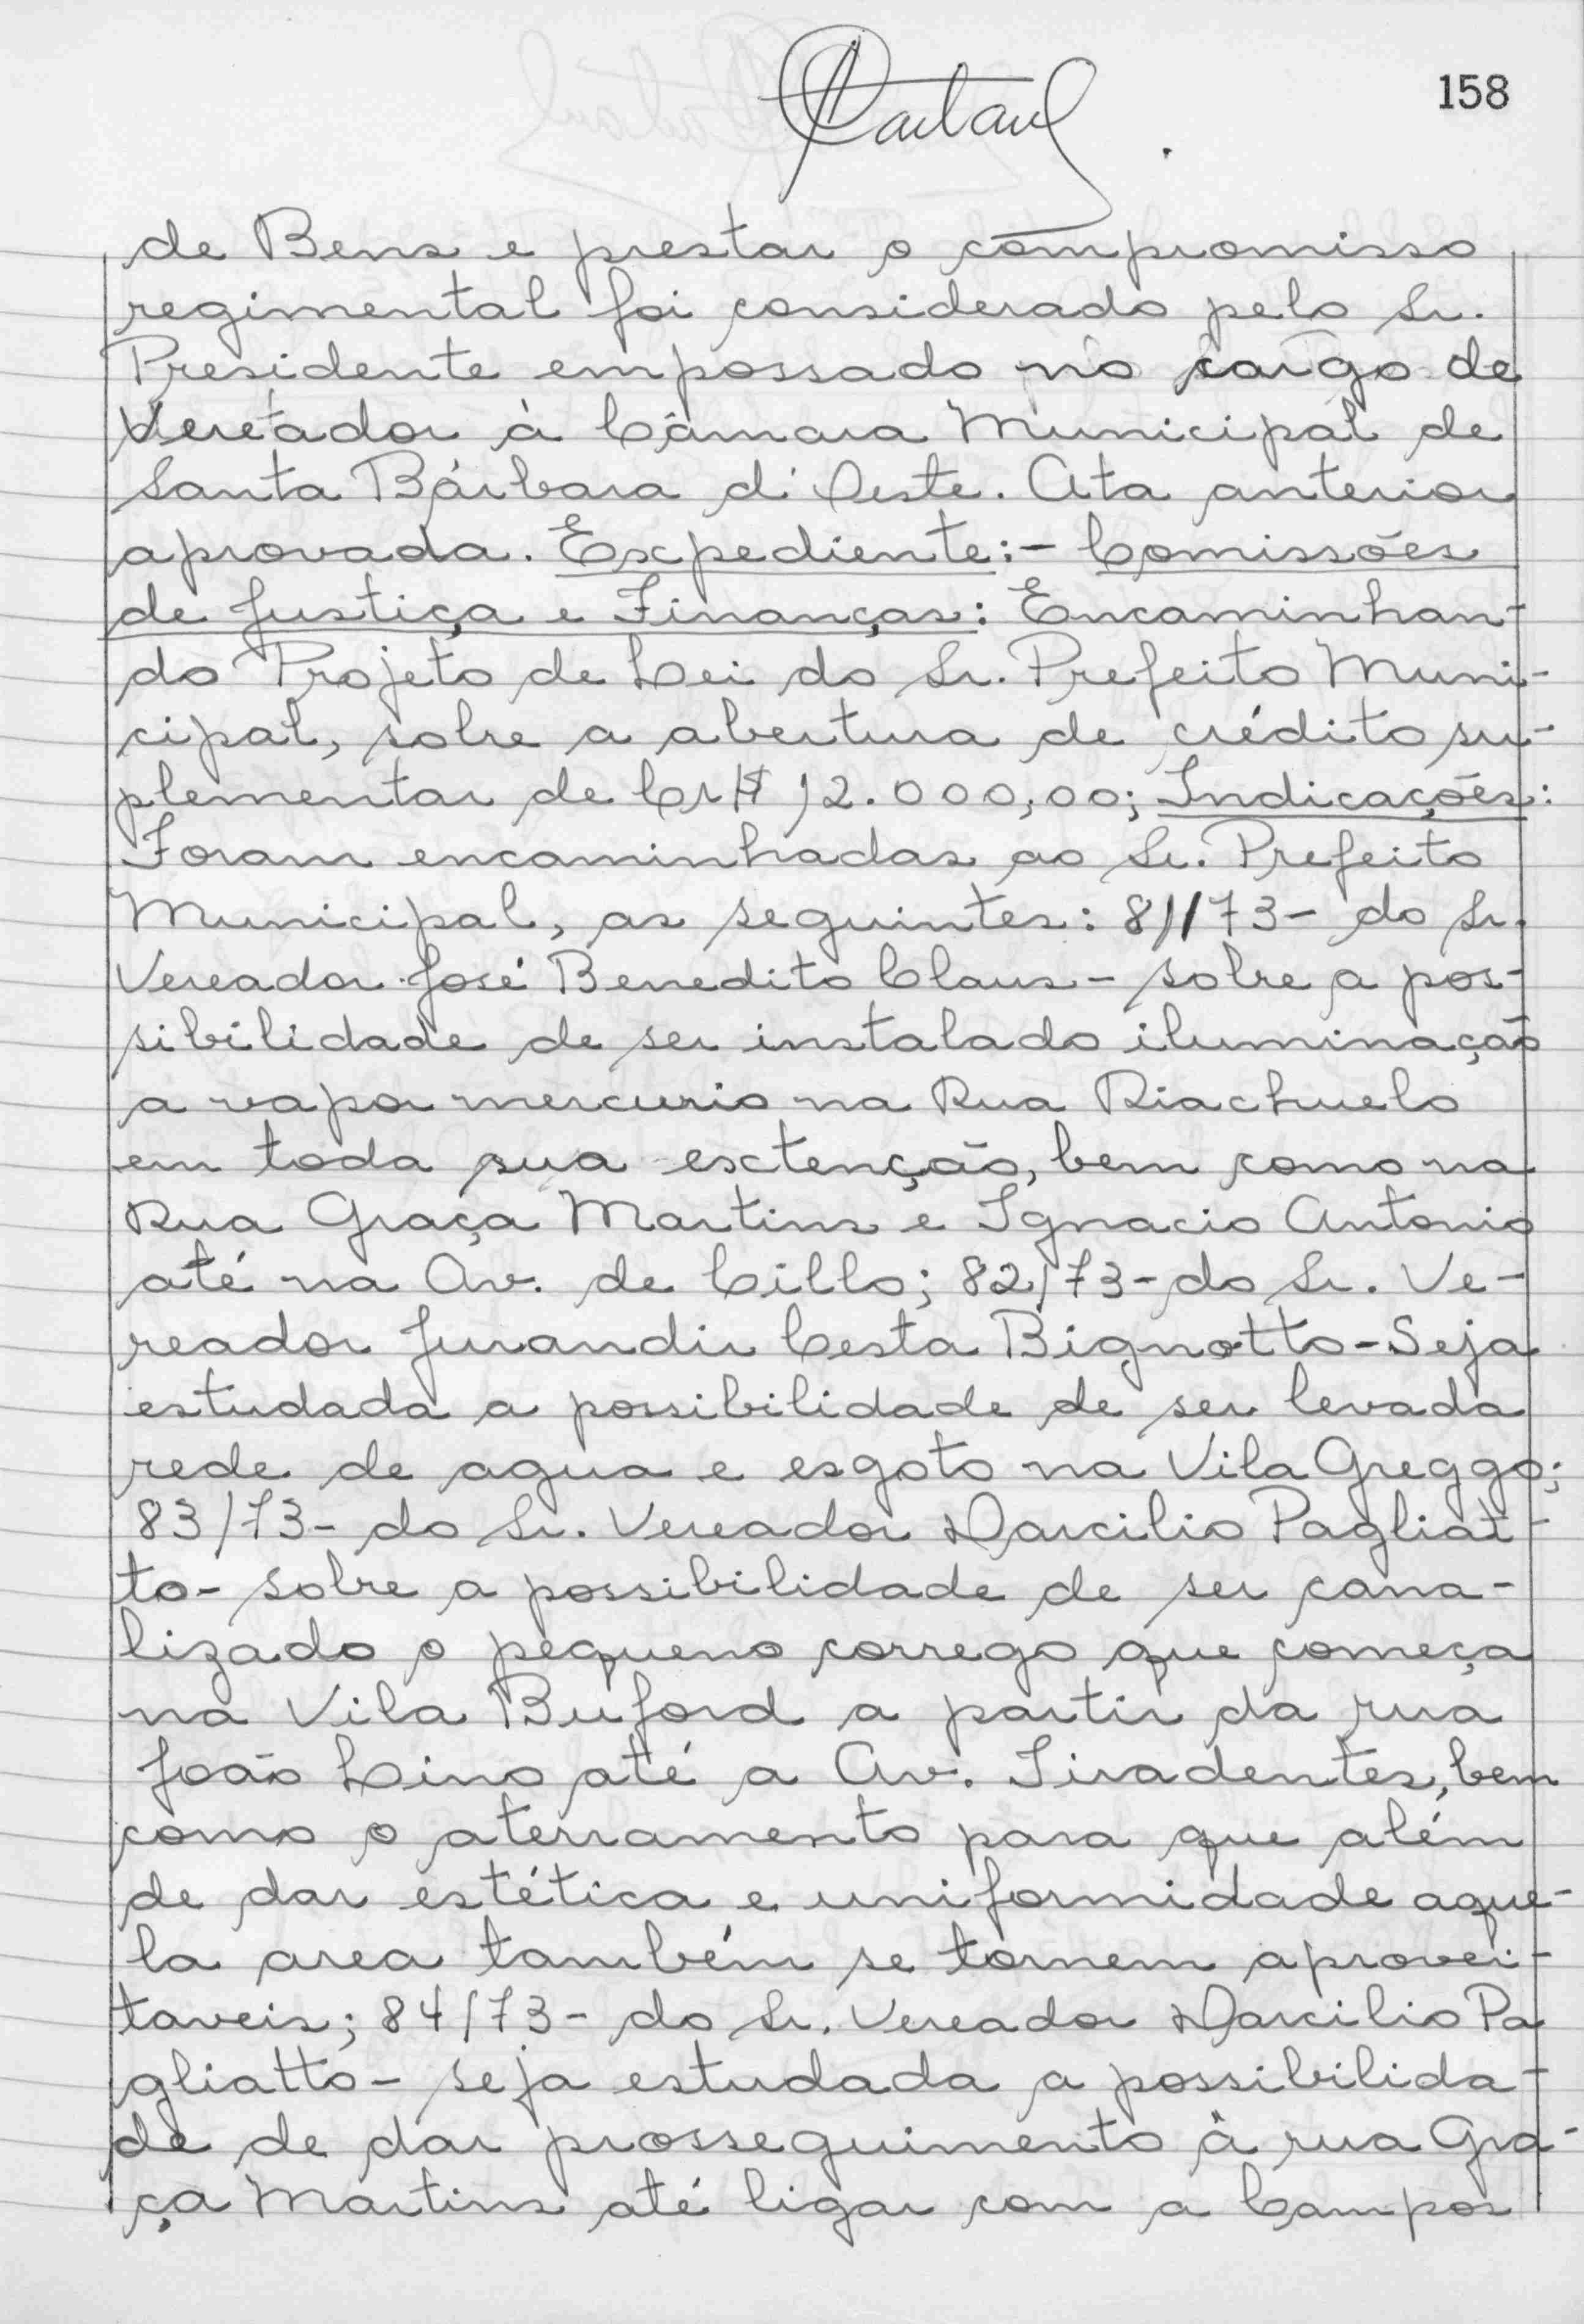 158
de Bens e prestar o compromisso
regimental foi considerado pelo Sr.
Presidente empossado no cargo de
Vereador à Câmara Municipal de
Santa Bárbara d'Oeste. Ata anterior
aprovada. Expediente:- Comissões
de Justiça e Finanças: Encaminhan-
do Projeto de Lei do Sr. Prefeito Muni-
cipal, sobre a abertura de crédito su-
plementar de Cr$ 12.000,00; Indicações:
Foram encaminhadas ao Sr. Prefeito
Municipal, as seguintes: 81/73- do Sr.
Vereador José Benedito Claus - sobre a pos-
sibilidade de ser instalado iluminação
a vapor mercurio na Rua Riachuelo
em toda sua extenção, bem como na
Rua Graça Martins e Ignacio Antonio
até na Av. de Cillo; 82/73- do Sr. Ve-
reador Jurandir Cesta Bignotto - Seja
estudada a possibilidade de ser levada
rede de agua e esgoto na Vila Greggo;
83/73- do Sr. Vereador Darcilio Pagliat-
to- sobre a possibilidade de ser cana-
lizado o pequeno corrego que começa
na Vila Buford a partir da rua
João Lino até a Av. Tiradentes, bem
como o aterramento para que além
de dar estética e uniformidade aque-
la area também se tornem aprovei-
taveis; 84/73- do Sr. Vereador Darcilio Pa
gliatto - seja estudada a possibilida-
de de dar prosseguimento à rua Gra-
ça Martins até ligar com a Campos